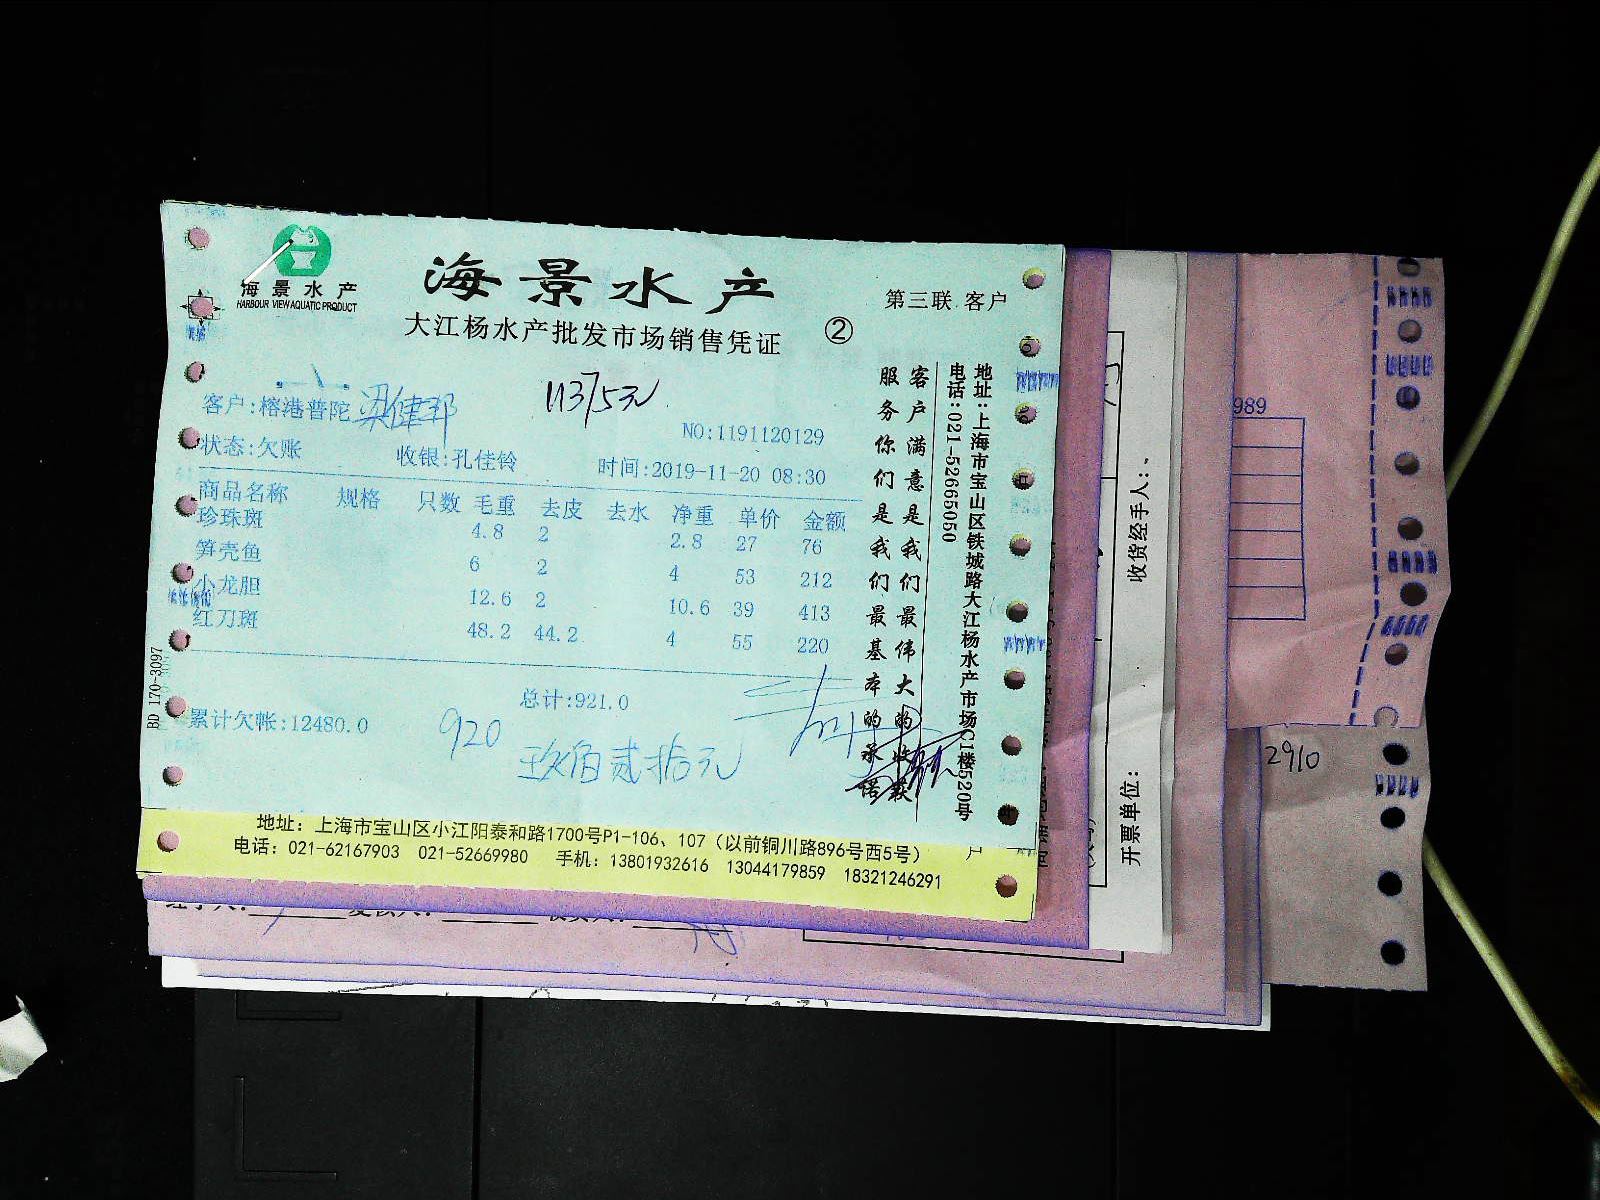 海景水产
HARBOUR VIEW AQUATIC PRODUCT
海景水产
大江杨水产批发市场销售凭证
②
第三联 客户
客户:榕港普陀 梁健邦
11375元
NO:1191120129
状态:欠账 收银:孔佳铃 时间:2019-11-20 08:30
商品名称 规格 只数 毛重 去皮 去水 净重 单价 金额
珍珠斑 4.8 2 2.8 27 76
笋壳鱼 6 2 4 53 212
小龙胆 12.6 2 10.6 39 413
红刀斑 48.2 44.2 4 55 220
总计:921.0
累计欠帐:12480.0
920
玖佰贰拾元
客户满意是我们最伟大的收获
服务你们是我们最基本的承诺
地址:上海市宝山区铁城路大江杨水产市场C1楼520号
电话:021-52665050
BD 170-3097
地址: 上海市宝山区小江阳泰和路1700号P1-106、107（以前铜川路896号西5号）
电话: 021-62167903 021-52669980 手机: 13801932616 13044179859 18321246291
户
收货经手人:
开票单位:
989
2910